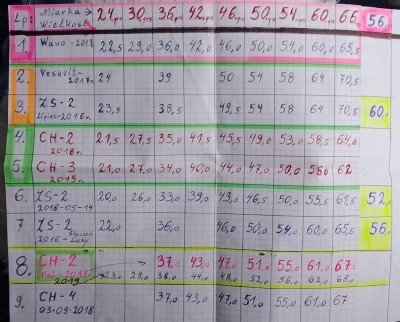 Lp: Miarka → Wielkość 24, 30, 36, 42, 46, 50, 54, 60, 66, 56
1. Wano - 22,5 29,0 36,0 42,0 46,0 50,0 54,0 60,0 65,5
2. Vesuvit - 2017r. 24 39 50 54 58 64 70,5
3. ZS-2 Lipiec-2016r. 23,5 38,5 49,5 54 58 64 70,5 60,0
4. CH-2 2018r. 21,5 27,5 35,0 41,5 45,5 49,0 53,0 58,5 64,0
5. CH-3 2015r. 21,0 27,0 34,0 40,0 44,0 47,0 50,0 56,0 62
6. ZS-2 2018-05-14 20,0 26,0 33,0 39,0 43,0 46,5 50,0 55,5 61,5 52,0
7 ZS-2 Styczeń 2016 - Luty 22,0 36,0 46,0 50,0 54,0 60,0 65,5 56,0
8. CH-2 37, 43, 47, 51,0 55,0 61,0 67,0
2019 23,0 29,0 38,0 44,0 48,0 52,0 56,0 62,0 68,0
9. CH-4 03-09-2018 37,0 43,0 47,0 51,0 55,0 61,0 67